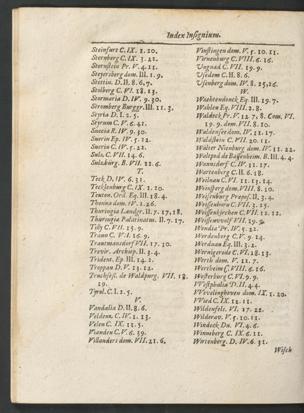 Index Insignium.
Steinfurt C. IX. 1. 20.
Sternberg C. IX. 3. 21.
Sternstein Pr. V. 4. 11.
Steyersberg dom. III. 1. 9.
Stettin. D. II. 8. 6. 7.
Stolberg C. VI. 18. 13.
Stormaria D. IV. 9. 30.
Stromberg Burggr. III. 11. 3.
Styria D. I. 2. 5.
Styrum C. V. 6. 41.
Suecia R. IV. 9. 30.
Suerin Ep. IV. 5. 12.
Suerin C. IV. 5. 22.
Sulz. C. VII. 14. 6.
Sulzbürg. B. VII. 11. 6.
T.
Teck D. IV. 6. 31.
Tecklenburg C. IX. 1. 20.
Teuton. Ord. Eq. III. 18. 4.
Thonna dom. IV. 1. 26.
Thuringia Landgr. II. 7. 17, 18.
Thuringia Palatinatus. II. 7. 17.
Tilly C. VII. 15. 9.
Traun C. VI. 16. 9.
Trautmansdorf VII. 17. 10.
Trevir. Archiep. II. 3. 4.
Trident. Ep. III. 14. 2.
Troppau D. V. 13. 12.
Truchseß. de Waldpurg. VII. 18. 29.
Tyrol. C. I. 2. 5.
V.
Vandalia D. II. 8. 6.
Veldenz. C. IV. 1. 23.
Velen C. IX. 11. 5.
Vianden C. V. 6. 39.
Villanders dom. VII. 21. 6.
Vinstingen dom. V. 5. 10. 11.
Virneuburg C. VIII. 6. 16.
Ungnad C. VII. 19. 9.
Usedom C. II. 8. 6.
Usenberg dom. 8. 25, 26.
W.
Wachtendonck Eq. III. 19. 7.
Wahlen Eq. VIII. 2. 8.
Waldeck Pr. V. 12. 7, 8. Com. VI. 19. 9. dom. VII. 8. 20.
Waldensee dom. IV. 11. 17.
Waldstein C. VII. 20. 11.
Walter Nienburg dom. IV. 1. 22.
Waltpod de Bassenheim. B. III. 4. 4.
Wannsdorf C. IV. 11. 17.
Wartenberg C. II. 6. 18.
Weilnau C. VI. 11. 13, 14.
Weinsberg dom. VIII. 8. 20.
Weissenburg Præpos. II. 3. 4.
Weissenburg C. VII. 3. 25.
Weissenkirchen C. VII. 12. 12.
Weissenwolf VII. 19. 9.
Wendia Pr. IV. 5. 22.
Werdenberg C. V. 9. 24.
Werdnau Eq. III. 3. 2.
Wernigeroda C. VI. 18. 13.
Werth dom. V. 11. 7.
Wertheim C. VIII. 6. 16.
Westerburg C. VI. 9. 9.
Westphalia D. II. 4. 4.
Wevelinghoven dom. IX. 1. 20.
Wied C. IX. 14. 11.
Wildenfels. VI. 17. 22.
Wilderaw. V. 5. 10. 11.
Windeck Dn. VI. 4. 6.
Winneberg C. IX. 6. 11.
Wirtenberg. D. IV. 6. 31.
Wisch